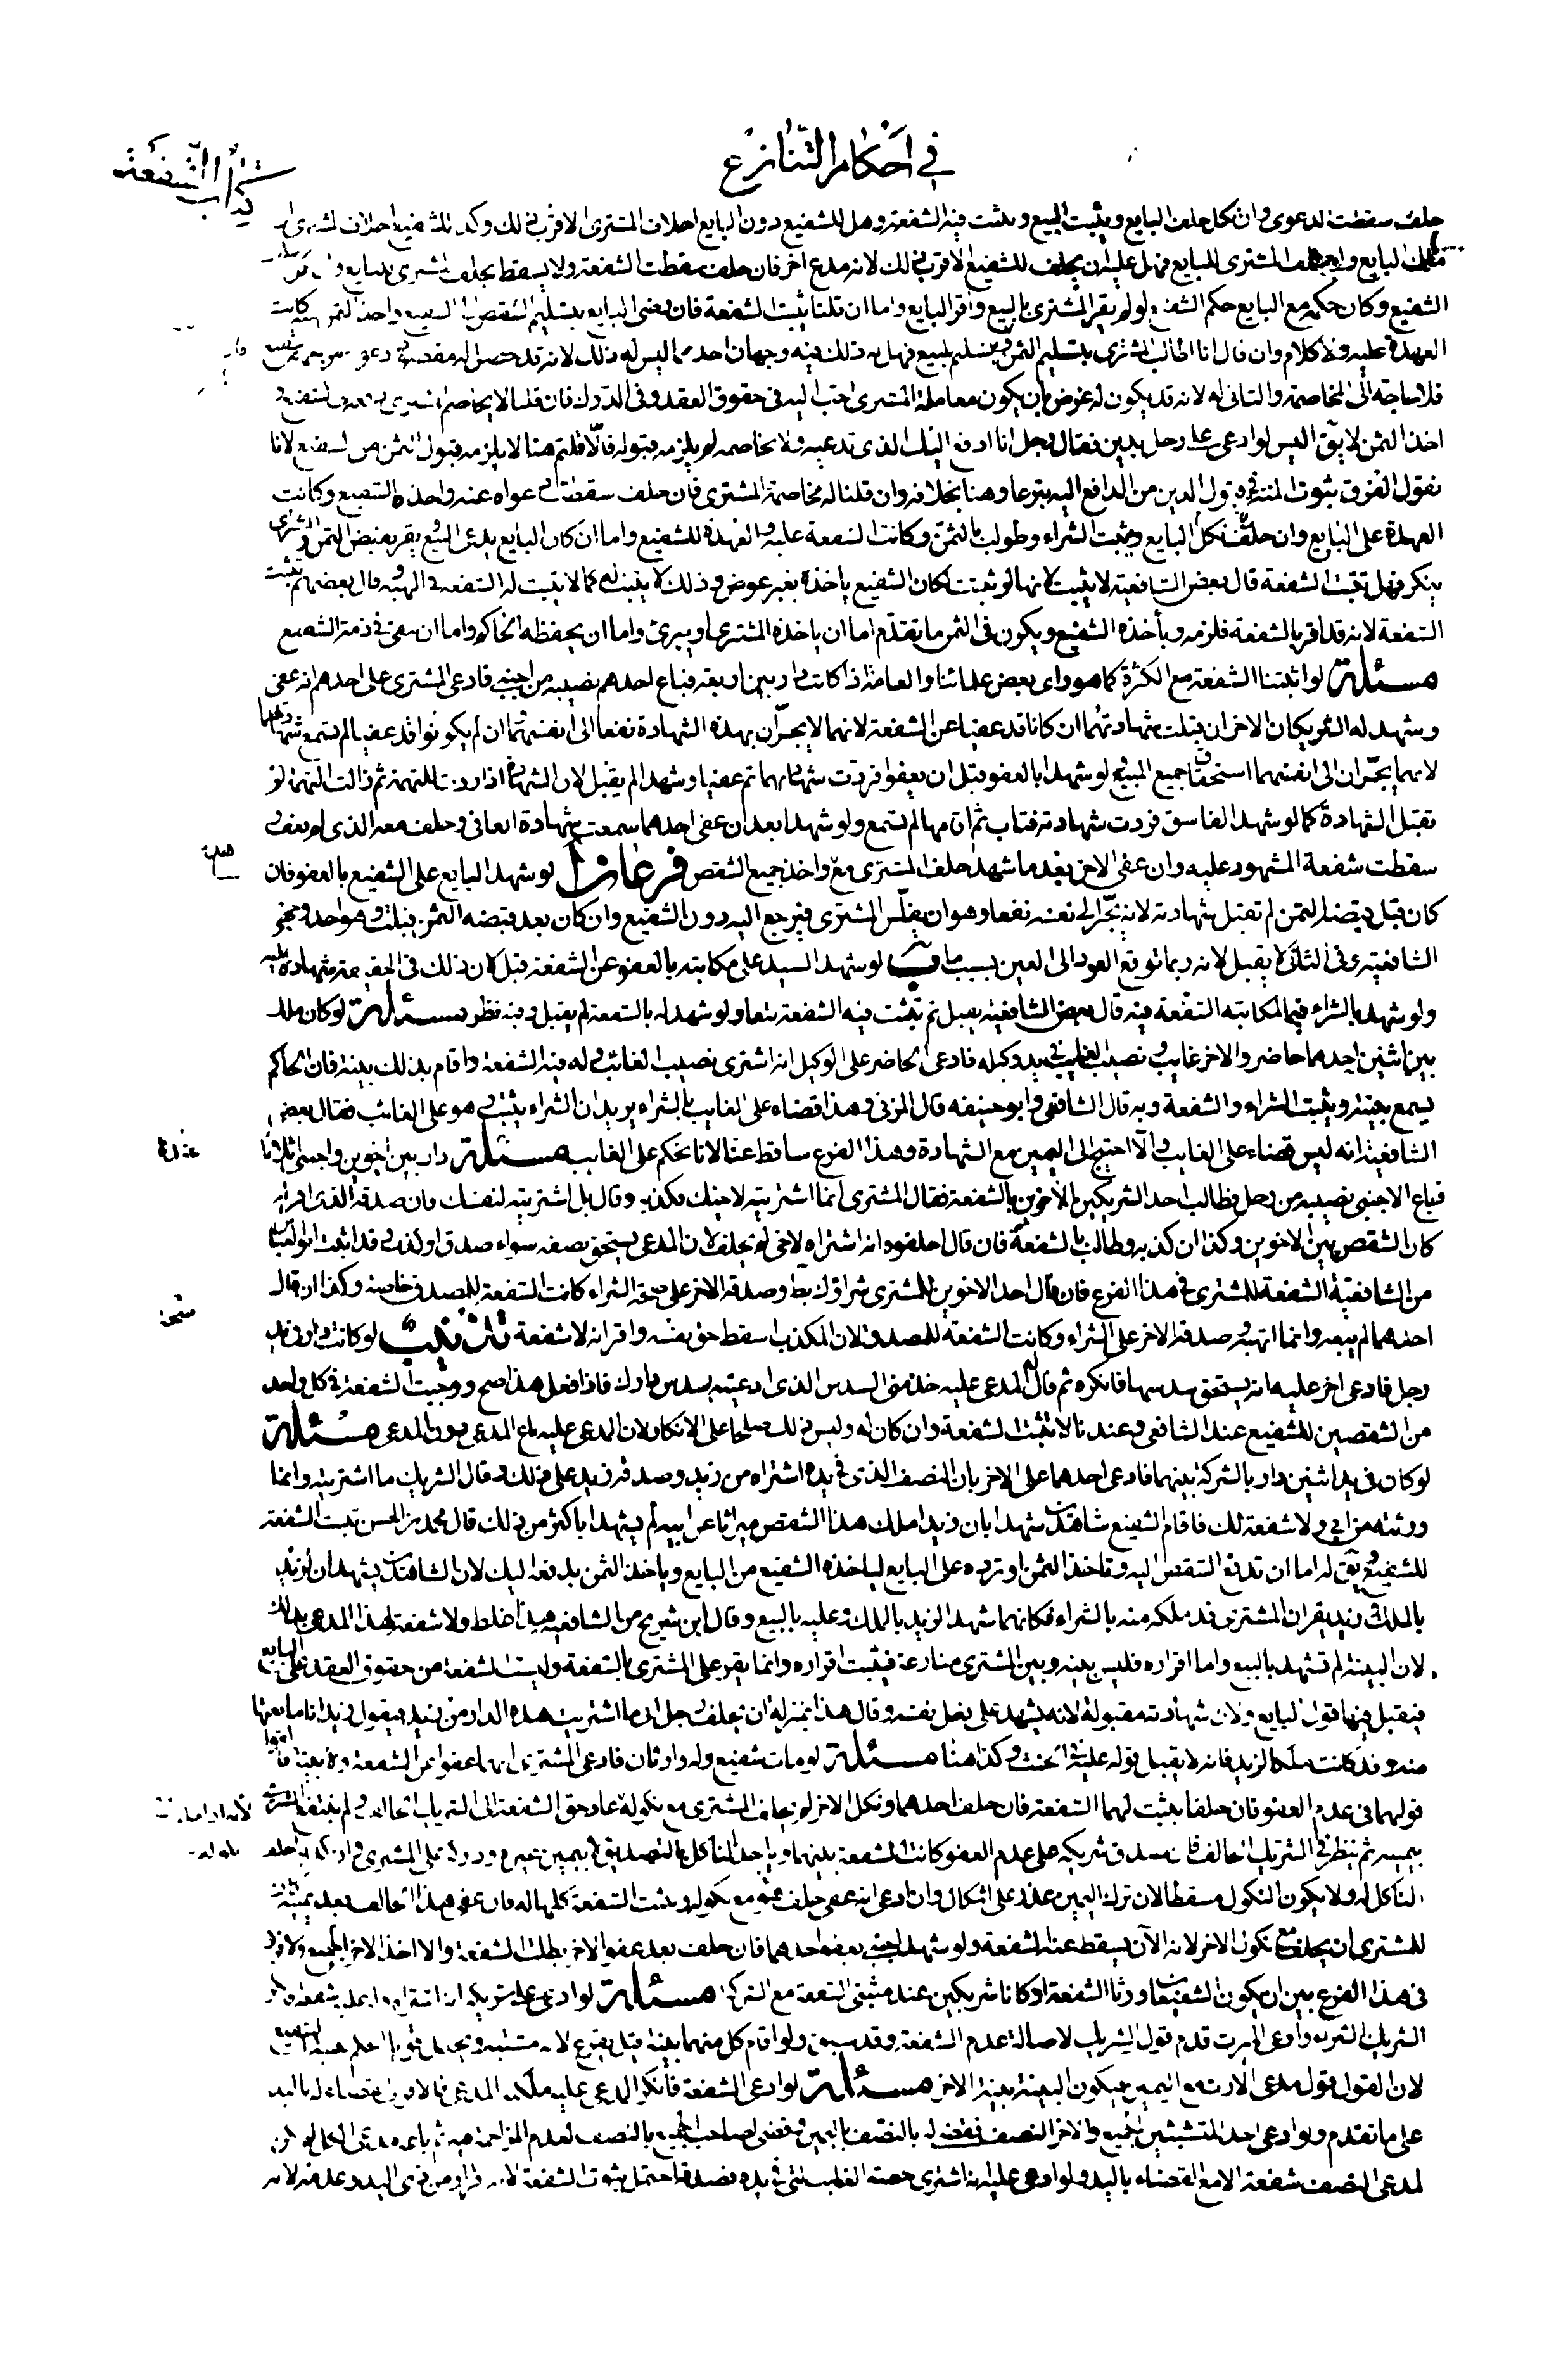 كتاب الشفعة
في احكام التنازع
حلف سقطت الدعوى وان نكل حلف البايع ويثبت البيع ويثبت فيه الشفعة وهل للشفيع دون البايع احلاف المشترى الاقرب ذلك وكذ للشفيع احلاف المشترى
البايع المشترى للبايع فهل عليه ان يحلف للشفيع الاقرب ذلك لانه مدع اخر فان حلف سقطت الشفعة ولا يسقط بحلف المشترى للبايع
الشفيع وكان حكمه مع البايع حكم الشفيع لو لم يقر المشترى بالبيع واقر البايع واما ان قلنا يثبت الشفعة فان رضى البايع بتسليم الشقص الى الشفيع واخذ الثمن كانت
العهدة عليه ولا كلام وان قال انا اطالب المشترى بتسليم الثمن وتسليم المبيع فهل له ذلك فيه وجهان احدهما ليس له ذلك لانه قد حصل له مقصوده
فلا حاجة الى المخاصمة والثانى له لانه قد يكون له غرض بان يكون معاملة المشترى احب اليه فى حقوق العقد وفى الدرك فان قلنا لا يخاصم المشترى
اخذ الثمن لا يق اليس لو ادعى على رجل بدين فقال رجل انا ادفع اليك الذى تدعيه ولا تخاصمه لم يلزمه قبوله فالا قلتم هنا لا يلزمه قبول الثمن من الشفيع لانا
نقول الفرق ثبوت المنة فى قبول الدين من الدافع اليه تبرعا وهنا بخلافه وان قلنا له مخاصمة المشترى فان حلف سقطت دعواه عنه واخذه الشفيع وكانت
العهدة على البايع وان حلف نكل البايع ويثبت الشراء وطولب بالثمن وكانت الشفعة عليه والعهدة للشفيع واما ان كان البايع يدعى البيع ويقر بقبض الثمن والمشترى
ينكر فهل تثبت الشفعة قال بعض الشافعية لا يثبت لانها لو ثبتت لكان الشفيع ياخذه بغير عوض وذلك لا يثبت له كما لا يثبت له الشفعة فى الهبة وقال بعضهم يثبت
الشفعة لانه قد اقر بالشفعة فلزمه وياخذه الشفيع ويكون فى الثمن ما تقدم اما ان ياخذه المشترى او يبرئ واما ان يحفظه الحاكم واما ان يبقى فى ذمة الشفيع
مسئلة لو اثبتنا الشفعة مع الكثرة كما هو راى بعض علمائنا والعامة اذا كانت دار بين اربعة فباع احدهم نصيبه من اجنبى فادعى المشترى على احدهم انه عفى
وشهد له الشريكان الاخران قبلت شهادتهما ان كانا قد عفيا عن الشفعة لانهما لا يجران بهذه الشهادة نفعا الى انفسهما وان لم يكونوا قد عفيا لم تسمع شهادتهما
لانهما يجران الى انفسهما استحقاق جميع المبيع ولو شهدا بالعفو قبل ان يعفوا فردت شهادتهما ثم عفيا وشهدا لم يقبل لان الشهادة اذا ردت للتهمة ثم زالت التهمة لم
تقبل الشهادة كما لو شهد الفاسق فردت شهادته فتاب ثم اقامها لم تسمع ولو شهدا بعد ان عفى احدهما سمعت شهادة العافى وحلف معه الذى لم يعف و
سقطت شفعة المشهود عليه وان عفى الاخر بعد ما شهد حلف المشترى معه واخذ جميع الشقص فرعان ا لو شهد البايع على الشفيع بالعفو فان
كان قبل قبضه الثمن لم تقبل شهادته لانه يجر الى نفسه نفعا وهو ان يفلس المشترى فيرجع اليه دون الشفيع وان كان بعد قبضه الثمن قبلت وهو احد وجهى
الشافعية وفى الثانى لا يقبل لانه ربما توقع العود الى العين بسبب ما ب لو شهد السيد على مكاتبه بالعفو عن الشفعة قبل لان ذلك فى الحقيقة شهادة عليه
ولو شهد بالشراء فيما لمكاتبه الشفعة فيه قال بعض الشافعية يقبل ثم تثبت فيه الشفعة تبعا ولو شهد له بالشفعة لم يقبل وفيه نظر مسئلة لو كان ملك
بين اثنين احدهما حاضر والاخر غايب ونصيب الغايب فى يد وكيله فادعى الحاضر على الوكيل انه اشترى نصيب الغائب وله فيه الشفعة واقام بذلك بينة فان الحاكم
يسمع بينته ويثبت الشراء والشفعة وبه قال الشافعى وابو حنيفه قال المزنى وهذا قضاء على الغايب بالشراء يريد ان الشراء يثبت وهو على الغائب فقال بعض
الشافعية انه ليس قضاء على الغايب والا احتيج الى اليمين مع الشهادة وهذا الفرع ساقط عنا لانا نحكم على الغايب مسئلة دار بين اخوين واجنبى اثلاثا
فباع الاجنبى نصيبه من رجل فطالب احد الشريكين الاخوين بالشفعة فقال المشترى انما اشتريته لاخيك فكذبه وقال بل اشتريته لنفسك فان صدقه
كان الشقص بين الاخوين وكذا ان كذبه وطالب بالشفعة فان قال احلفوه انه اشتراه لاخى لم يحلف لان المدعى يستحق نصفه سواء صدق او كذب
من الشافعية الشفعة للمشترى فى هذا الفرع فان قال احد الاخوين للمشترى شراؤك بط وصدقه الاخر على صحة الشراء كانت الشفعة للمصدق خاصة وكذا ان قال
احدهما لم يبعه وانما اتهبه وصدقه الاخر على الشراء وكانت الشفعة للمصدق لان المكذب اسقط حق نفسه واقر انه لا شفعة تذنيب لو كانت دار فى يد
رجل فادعى اخر عليه انه يستحق سدسها فانكره ثم قال له المدعى عليه خذ منى السدس الذى ادعيته بسدس دارك فاذا فعل هذا صح ووجبت الشفعة فى كل واحد
من الشقصين للشفيع عند الشافعى وعندنا لا تثبت الشفعة وان كان له وليس ذلك صلحا على الانكار لان المدعى عليه باع المدعى دون المدعى مسئلة
لو كان فى يد اثنين دار بالشركة بينهما فادعى احدهما على الاخر بان النصف الذى فى يده اشتراه من زيد وصدقه زيد على ذلك وقال الشريك ما اشتريته وانما
ورثته من ابى ولا شفعة لك فاقام الشفيع شاهدين شهدا بان زيدا ملك هذا الشقص ميراثا عن ابيه لم يشهدا باكثر من ذلك قال محمد بن الحسن تثبت الشفعة
للشفيع ويق له اما ان تدفع الشقص اليه وتاخذ الثمن او ترده على البايع لياخذه الشفيع من البايع وياخذ الثمن يدفعه اليك لان الشاهدين يشهدان لزيد
بالملك وزيد يقر ان المشترى قد ملكه منه بالشراء فكانهما شهدا لزيد بالملك وعليه بالبيع وقال ابن شريح من الشافعية هذا غلط ولا شفعة لهذا المدعى بذلك
لان البينة لم تشهد بالبيع واما اقراره فليس بينه وبين المشترى منازعة فيثبت اقراره وانما يقر على المشترى بالشفعة وليست الشفعة من حقوق العقد على البايع
فيقبل فيها قول البايع ولان شهادته مقبولة لانه يشهد على فعل نفسه وقال هذا بمنزلة ان يحلف رجل انى ما اشتريت هذه الدار من زيد فيقول زيد انا ما بعتها
منه وقد كانت ملكا لزيد فانه لا يقبل قوله عليه فى الحنث وكذا هنا مسئلة لو مات شفيع وله وارثان فادعى المشترى انهما عفوا عن الشفعة ولا بينة فالقول
قولهما فى عدم العفو فان حلفا يثبت لهما الشفعة فان حلف احدهما ونكل الاخر لم يحلف المشترى مع نكوله
بيمينه ثم ننظر فى الشريك الحالف فان صدق شريكه على عدم العفو كانت الشفعة بينهما وياخذ الناكل بالتصديق لا بيمين غيره ودركه على المشترى
الناكل له ولا يكون النكول مسقطا لان ترك اليمين عذر على اشكال وان ادعى انه عفى حلف مع نكوله ويثبت الشفعة كلها له فان عفى هذا الحالف بعد يمينه
للمشترى ان يحلف مع نكول الاخر لانه الان يسقط عنه الشفعة ولو شهد اجنبى بعفو احدهما فان حلف بعد عفو الاخر بطلت الشفعة والا اخذ الاخر الجميع ولا فرق
فى هذا الفرع بين ان يكون الشفيعان ورثا الشفعة او كانا شريكين عند مثبتى الشفعة مع الكثرة مسئلة لو ادعى على شريكه
الشريك الشراء وادعى الارث قدم قول الشريك لاصالة عدم الشفعة وقد سبق ولو اقام كل منهما بينة قيل يقرع لانه مشتبه
لان القول قول مدعى الارث مع اليمين فيكون البينة بينة الاخر مسئلة لو ادعى الشفعة فانكر المدعى عليه ملكه المدعى
على ما تقدم ولو ادعى احد المتشبثين الجميع والاخر النصف فقضى له بالنصف باليمين وقضى لصاحب الجميع بالنصف لعدم المزاحمة فيه
لمدعى النصف شفعة الا مع القضاء باليد ولو ادعى عليه انه اشترى حصة الغائب التى فى يده فصدقه احتمل ثبوت الشفعة لانه اقرار من ذى اليد وعدمه لانه